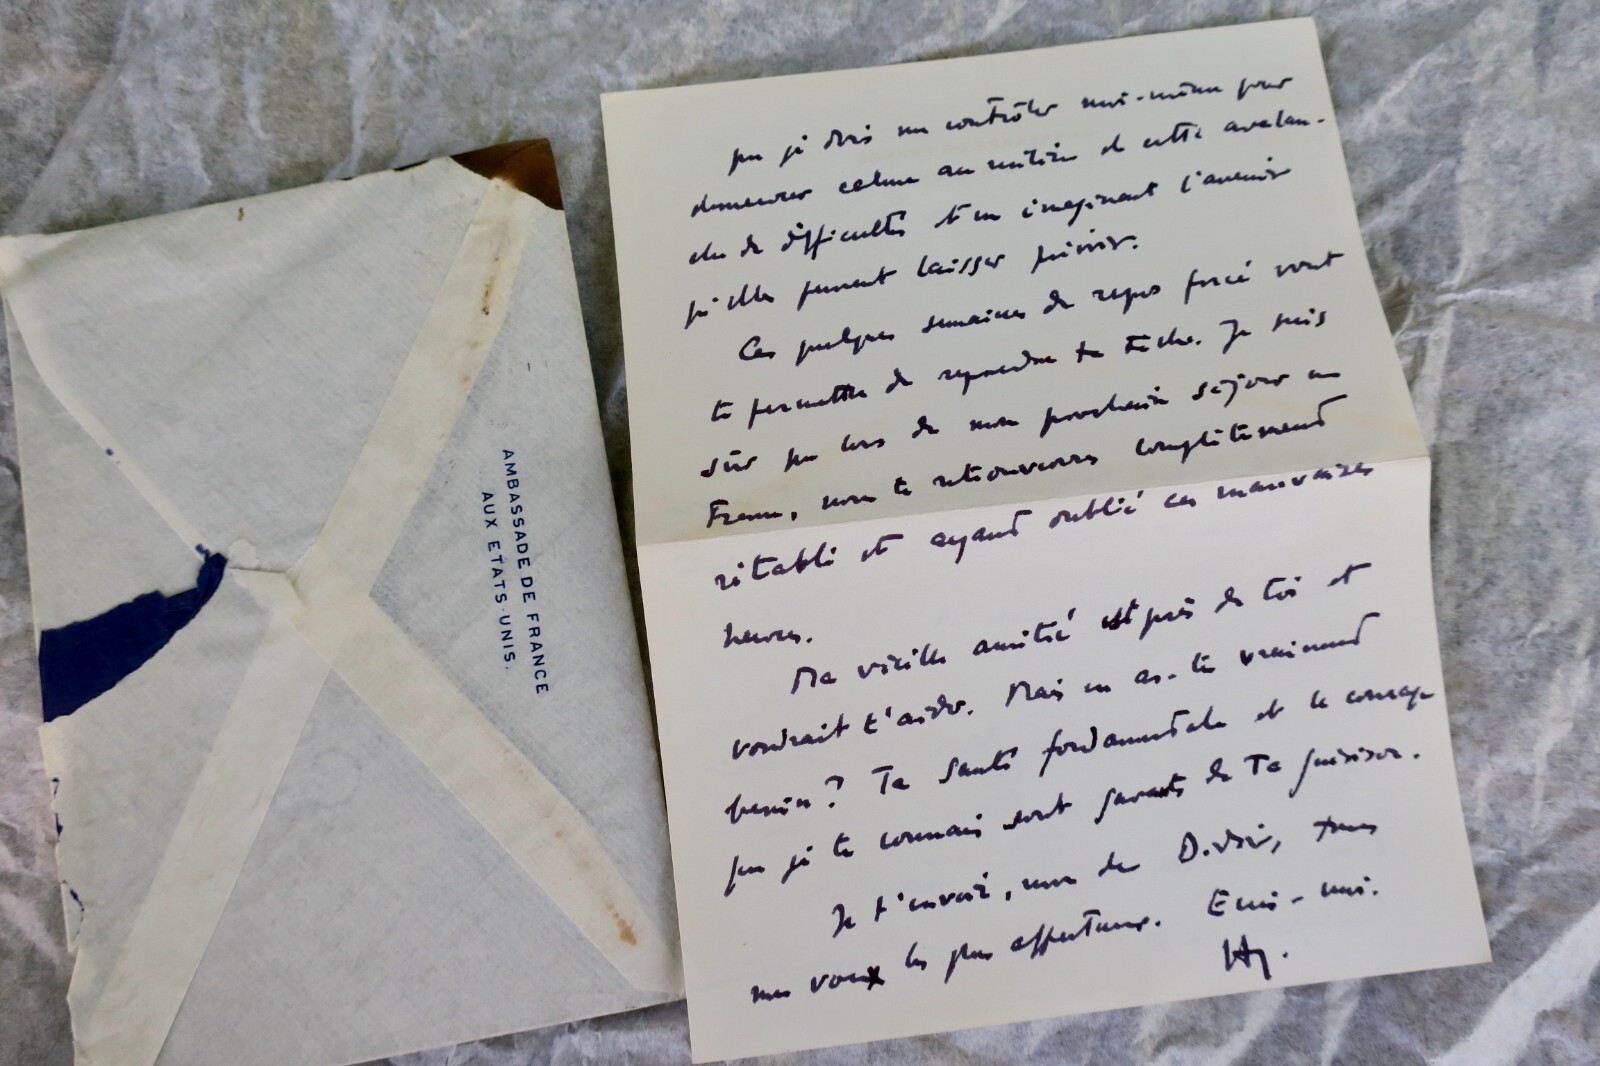 AMBASSADE DE FRANCE
AUX ETATS-UNIS.
que je dois me contrôler moi-même pour
demeurer calme au milieu de cette avalan-
che de difficultés et en imaginant l'avenir
qu'elles peuvent laisser prévoir.
Ces quelques semaines de repos forcé vont
te permettre de reprendre ta tâche. Je suis
sûr que lors de mon prochain séjour en
France, nous te retrouverons complètement
rétabli et ayant oublié ces mauvaises
heures.
Ma vieille amitié est près de toi et
voudrait t'aider. Mais en as-tu vraiment
besoin ? Ta santé fondamentale et le courage
que je te connais sont garants de ta guérison.
Je t'envoie, avec de, tous
mes voeux les plus affectueux. Ecris-moi.